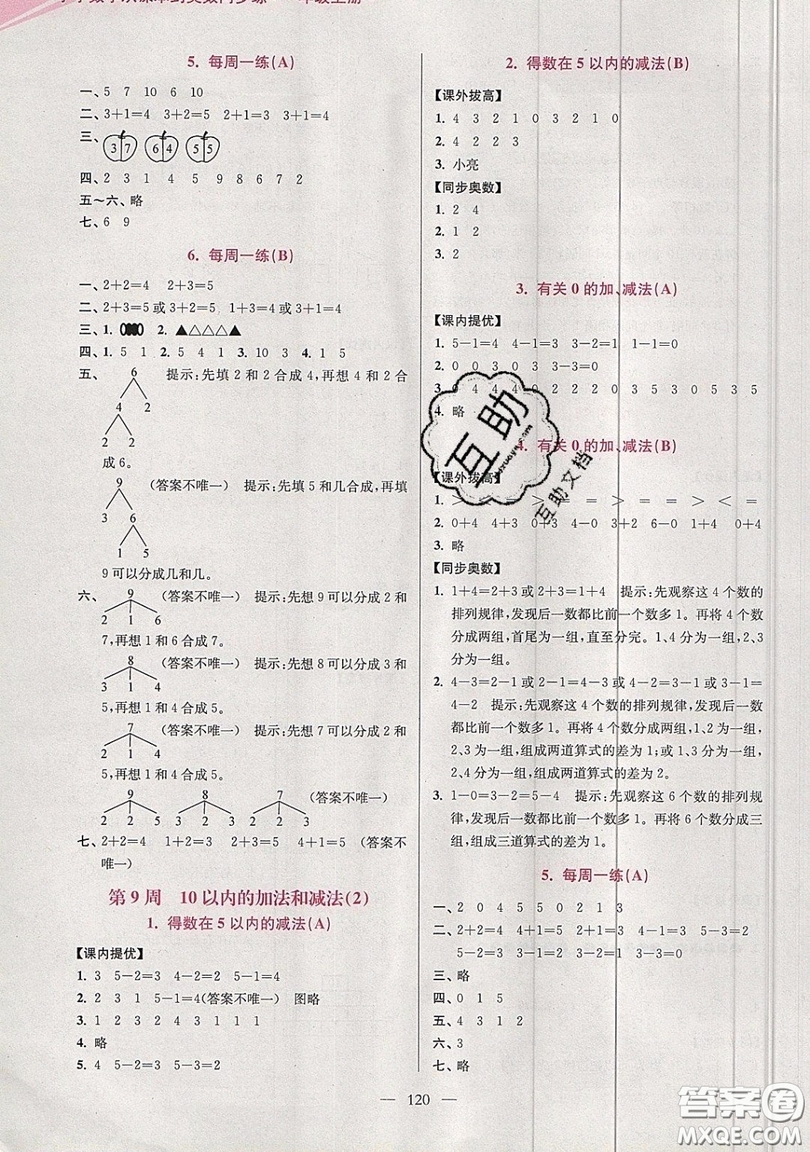 5. 每周一练(A)
一、5 7 10 6 10
二、3+1=4 2+2=4 3+1=2 3+1=4
三、3 7 6 4 5 5
四、2 3 1 4 5 9 8 6 7 2
五~六、略
七、6 9
6. 每周一练(B)
一、2+2=4 2+3=5
二、2+3=5 或 3+2=5 1+3=4 或 3+1=4
三、1. 2. ▲△△△▲
四、1. 5 1 2. 5 4 1 3. 10 3 4. 1 5
五、 6 提示:先填 2 和 2 合成 4,再想 4 和 2 合
4 2
2 2
成 6。
9 (答案不唯一) 提示:先填 5 和几合成,再填
3 6
1 5
9 可以分成几和几。
六、 9 (答案不唯一) 提示:先想 9 可以分成 2 和
2 1 6
7,再想 1 和 6 合成 7。
8 (答案不唯一) 提示:先想 8 可以分成 3 和
3 1 4
5,再想 1 和 4 合成 5。
7 (答案不唯一) 提示:先想 7 可以分成 2 和
2 1 4
5,再想 1 和 4 合成 5。
9 8 7 (答案不唯一)
2 2 5 3 2 3 2 2 3
七、2+2=4 1+2=3 2+3=5 4+1=5 (答案不
唯一)
第 9 周 10 以内的加法和减法(2)
1. 得数在 5 以内的减法(A)
【课内提优】
1. 3 5-2=3 4-2=2 5-1=4
2. 5-1=4 5-4=1(答案不唯一) 图略
3. 1 2 3 2 3 4 3 1 1 1
4. 略
5. 4 2 4 5-3=2 5-2=3
2. 得数在 5 以内的减法(B)
【课外拔高】
1. 4 3 2 1 0 3 2 1 0
2. 4 2 2 3
3. 小亮
【同步奥数】
1. 2 4
2. 1 2
3. 2
3. 有关 0 的加、减法(A)
【课内提优】
1. 5-1=4 4-1=3 3-2=1 1-1=0
2. 0 0 3 0 3 3-3=0
3. 0 4 4 0 2 2 2 0 3 5 3 0 5 3 5
4. 略
4. 有关 0 的加、减法(B)
【课外拔高】
2. 0+4 4+3 0+3 4-0 3+2 6-0 1+0 0+4
3. 略
【同步奥数】
1. 1+4=2+3 或 2+3=1+4 提示:先观察这 4 个数的
排列规律,发现后一数都比前一个数多 1。再将 4 个数
分成两组,首尾为一组,直至分完。1、4 分为一组,2、3
分为一组。
2. 4-3=2-1 或 4-2=3-1 或 4-3=2-1 或 3-1=
4-2 提示:先观察这 4 个数的排列规律,发现后一数
都比前一个数多 1。再将 4 个数分成两组,1、2 为一组,
3、4 为一组,组成两道算式的差为 1;或 1、3 为一组,
2、4 为一组,组成两道算式的差为 2。
3. 1-0=3-2=5-4 提示:先观察这 6 个数的排列规
律,发现后一数都比前一个数多 1。再将 6 个数分成三
组,组成三道算式的差为 1。
5. 每周一练(A)
一、2 0 4 5 5 0 2 1 3
二、2+2=4 4-4=0 4-1=3 0+4=4 5-3=2
5-2=3 0+3=3 1+2=3 3-3=0
三、略
四、0 1 5
五、4 3 1 2
六、3
七、略
— 120 —
互助
互助文档
答案圈
MXQE.COM